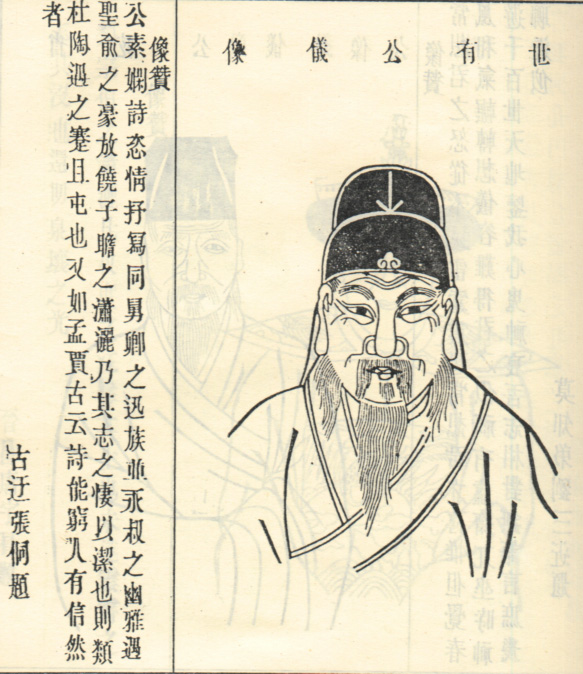 世有公儀像
像贊
公素嫻詩恣情抒寫同曼卿之迅族並永叔之幽雅遇
聖兪之豪放饒子瞻之瀟灑乃其志之悽以潔也則類
杜陶遇之蹇且屯也又如孟賈古云詩能窮人有信然
者
古迂張侗題